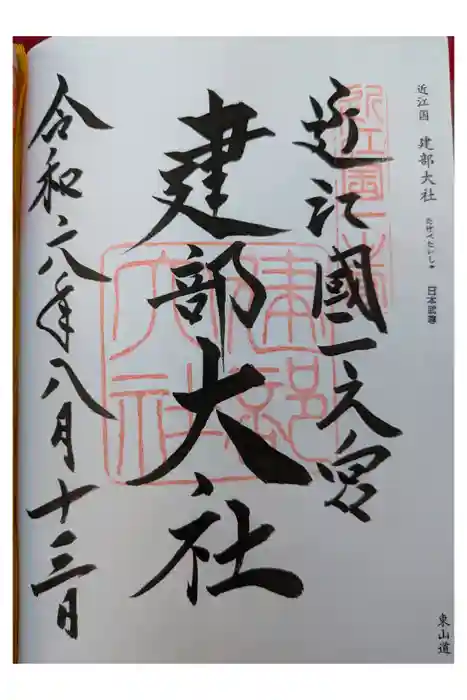 近江国 建部大社 たけべたいしゃ 日本武尊
近江國一之宮
建部大社
令和六年八月十三日
東山道
近江国一之宮
建部大社